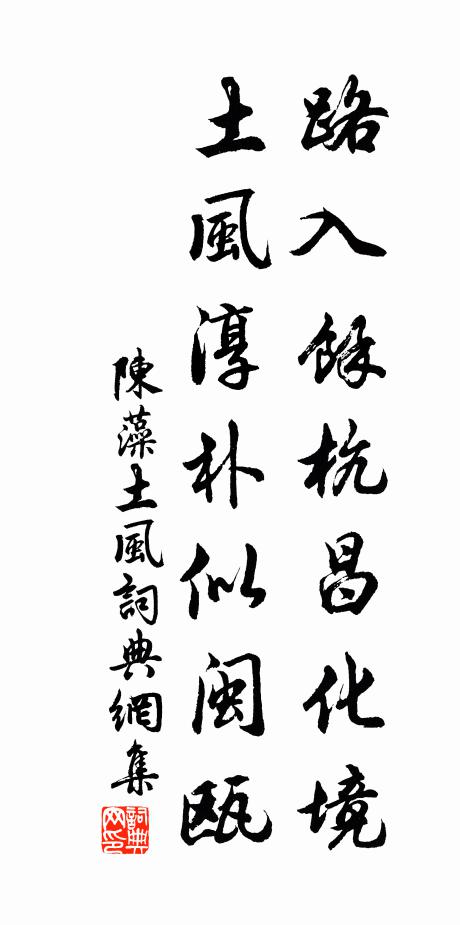 路入餘杭昌化境
土風淳朴似閩甌
陳藻土風詞典網集
詞典
网印